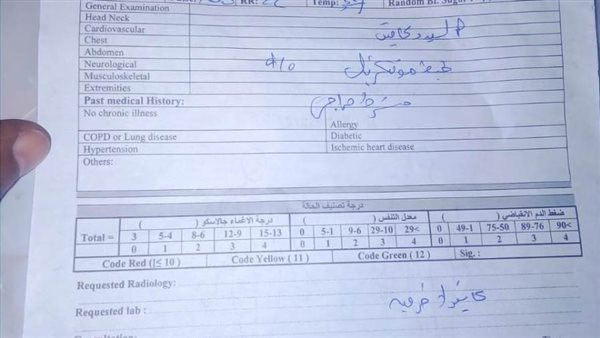 RR: 22 Temp: 37 Random Bl. Sugar
General Examination
Head Neck
Cardiovascular
Chest
Abdomen
Neurological
Musculoskeletal
Extremities
Past medical History:
مشرط جراحي
No chronic illness
Allergy
COPD or Lung disease
Diabetic
Hypertension
Ischemic heart disease
Others:
درجة تصنيف الحالة
درجة الاغماء جالاسكو ( )
معدل التنفس ( )
ضغط الدم الانقباضي ( )
Total = 3 5-4 8-6 12-9 15-13 0 5-1 9-6 29-10 29< 0 49-1 75-50 89-76 90<
0 1 2 3 4 0 1 2 3 4 0 1 2 3 4
Code Red (|≤ 10 ) Code Yellow ( 11 ) Code Green ( 12 ) Sig. :
Requested Radiology:
Requested lab :
Consultation: